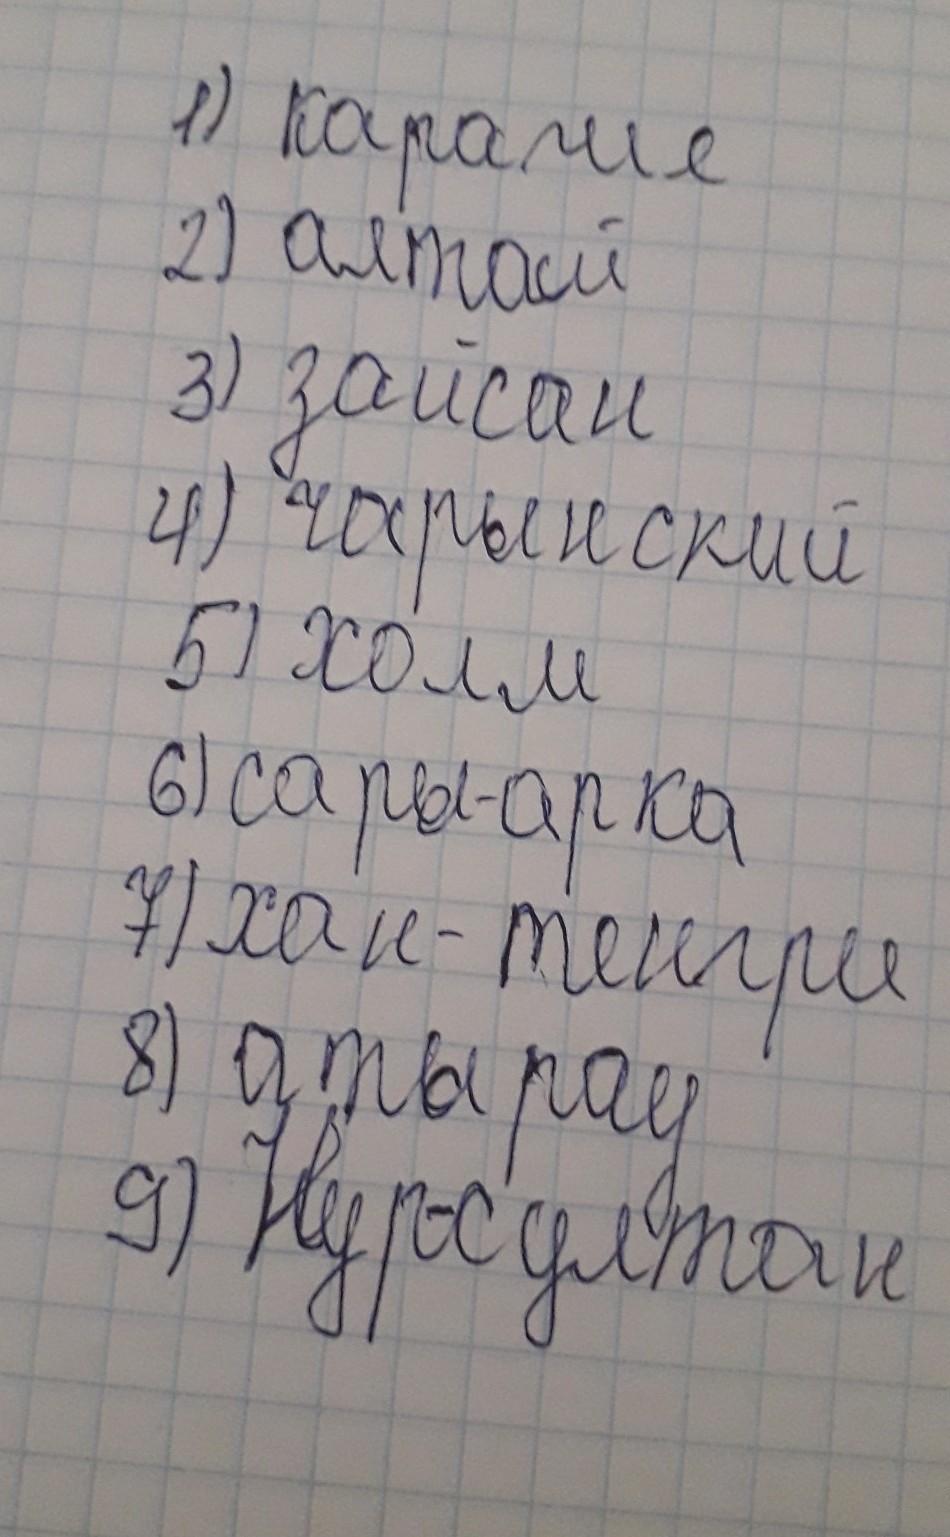 1) Карагие
2) алтай
3) зайсан
4) чарынский
5) холм
6) сары-арка
7) хан-тенгри
8) атырау
9) Нур-султан